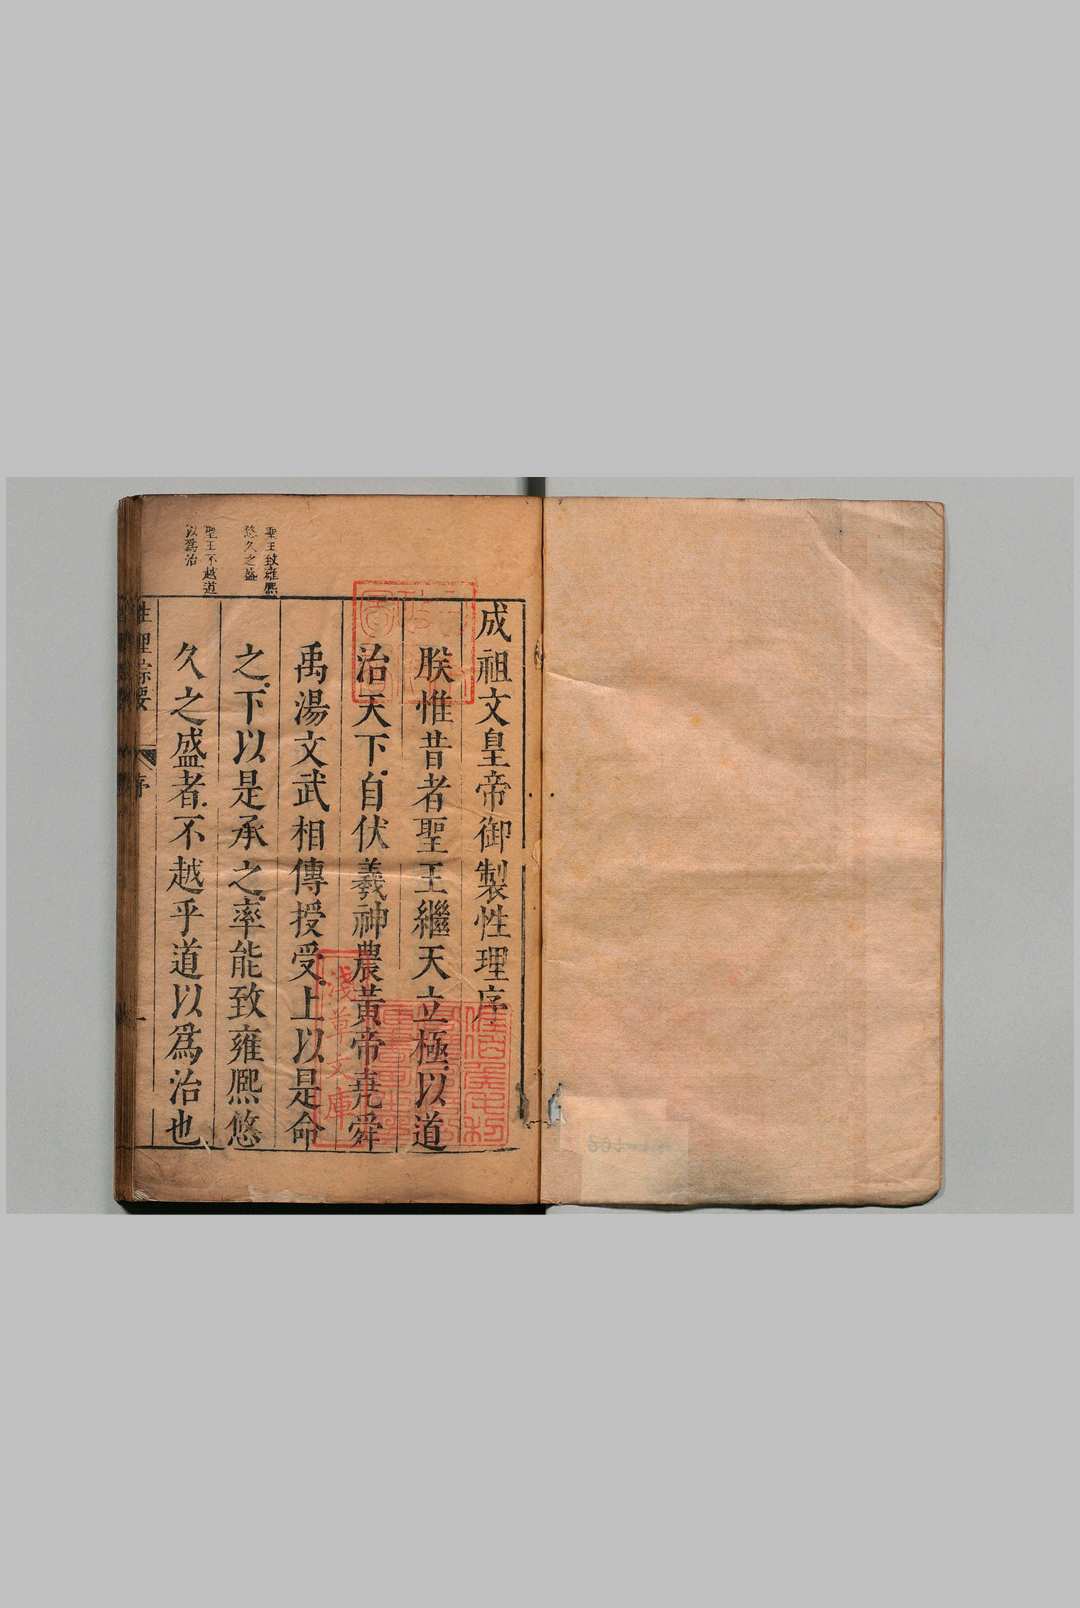 成祖文皇帝御製性理序
朕惟昔者聖王繼天立極以道
治天下自伏羲神農黃帝堯舜
禹湯文武相傳授受上以是命
之下以是承之率能致雍熈悠
久之盛者不越乎道以爲治也
聖王致雍熈
悠久之盛
聖王不越道
以爲治
性理綜要
序
一
淺草文庫